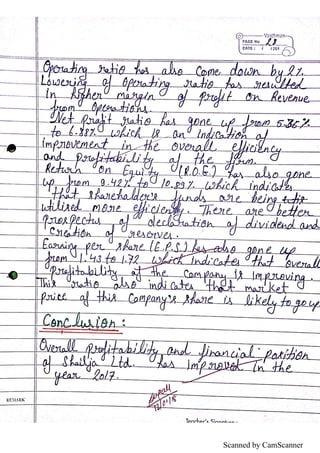 Vidya
PAGE NO. 23
DATE: / /201
Operating ratio has also come down by 2%.
Lowering of operating ratio has resulted
in higher margin of profit on Revenue
from operations.
Net Profit ratio has gone up from 5.35%
to 6.88% which is an indication of
improvement in the overall efficiency
and profitability of the firm.
Return on Equity (R.O.E) has also gone
up from 9.42% to 10.89% which indicates
that shareholder's funds are being
utilised more efficiently. There are better
prospectus of declaration of dividend and
creation of reserves.
Earning per share (E.P.S) has also gone up
from 1.43 to 1.72 which indicates that overall
profitability of the company is improving.
This ratio also indicates that market
price of this company's share is likely to go up.
Conclusion :
Overall profitability and financial position
of Shailja Ltd. has improved in the
year 2017.
REMARK
Teacher's Signature
Scanned by CamScanner